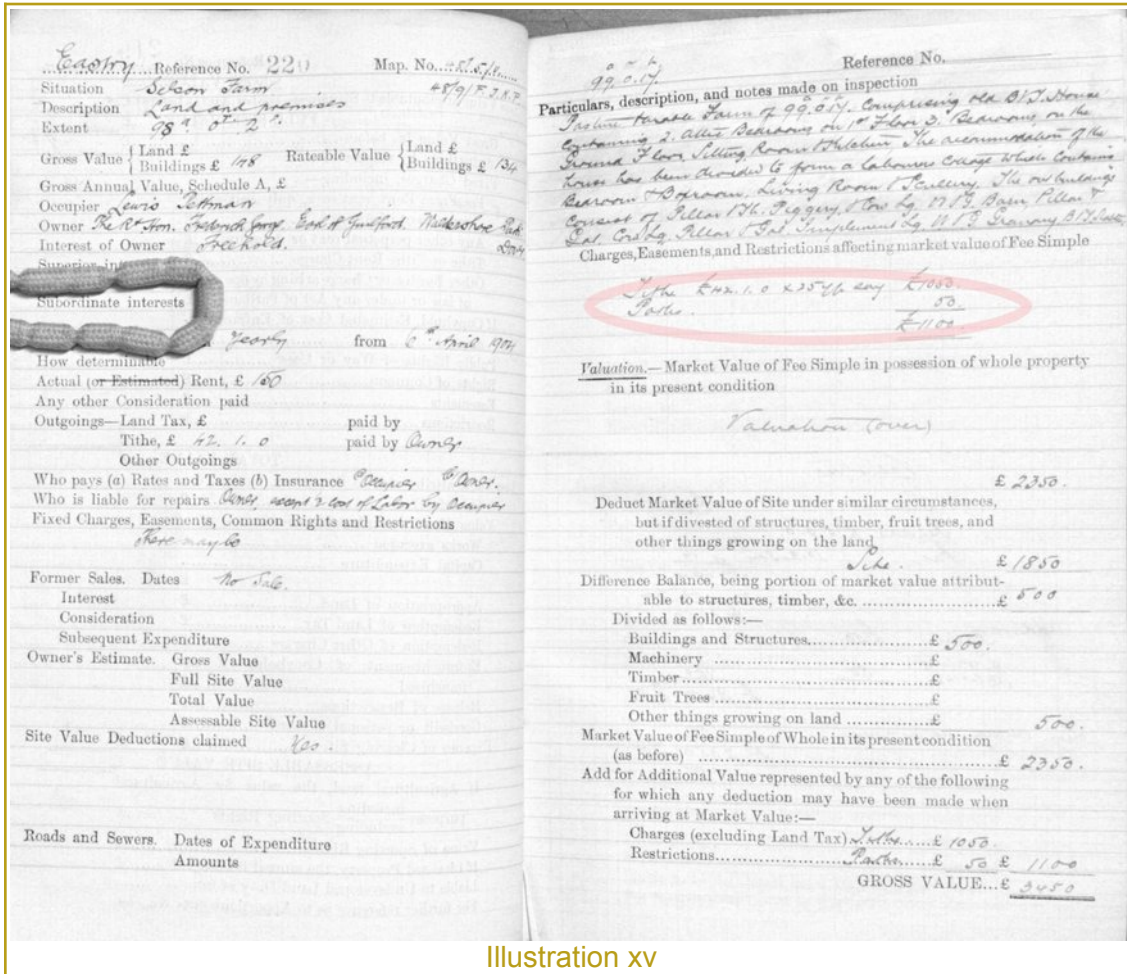 Eastry Reference No. 220 Map. No.
Situation Selson Farm
Description Land and premises
Extent 98ᵃ 0ʳ 2ᵖ
Gross Value { Land £
Buildings £ 148
Rateable Value { Land £
Buildings £ 134
Gross Annual Value, Schedule A, £
Occupier Lewis Pettman
Owner The Rt Hon. Frederick George Earl of Guilford, Waldershare Park Dover
Interest of Owner Freehold.
Superior int
Subordinate interests
Yearly from 6th April 1904
How determinable
Actual (or Estimated) Rent, £ 150
Any other Consideration paid
Outgoings—Land Tax, £ paid by
Tithe, £ 42. 1. 0 paid by Owner
Other Outgoings
Who pays (a) Rates and Taxes (b) Insurance a Occupier b Owner.
Who is liable for repairs Owner, except cost of Labor by Occupier
Fixed Charges, Easements, Common Rights and Restrictions
There may be
Former Sales. Dates No Sale.
Interest
Consideration
Subsequent Expenditure
Owner's Estimate. Gross Value
Full Site Value
Total Value
Assessable Site Value
Site Value Deductions claimed Yes.
Roads and Sewers. Dates of Expenditure
Amounts
Reference No.
a r p
99.0.17.
Particulars, description, and notes made on inspection
Pasture & arable Farm of 99.0.17. Comprising old B.T. House
containing 2 Attic Bedrooms on 1st Floor 3 Bedrooms on the
Ground Floor Sitting Room & Kitchen. The accommodation of the
house has been divided to form a labourers cottage which contains
Bedroom & Boxroom, Living Room & Scullery. The outbuildings
consist of Pillar & Th. Piggery & Cow Lg. Barn, Pillar &
Gal. Cow Lg. Pillar & Gal. Implement Lg. Granary B.T.
Charges, Easements, and Restrictions affecting market value of Fee Simple
Tithe £42.1.0 x 25 yp say £1050.
Paths. 50.
£1100.
Valuation.—Market Value of Fee Simple in possession of whole property
in its present condition
Valuation (over)
£ 2350.
Deduct Market Value of Site under similar circumstances,
but if divested of structures, timber, fruit trees, and
other things growing on the land
Site. £ 1850
Difference Balance, being portion of market value attribut-
able to structures, timber, &c. £ 500
Divided as follows:—
Buildings and Structures £ 500.
Machinery £
Timber £
Fruit Trees £
Other things growing on land £ 500.
Market Value of Fee Simple of Whole in its present condition
(as before) £ 2350.
Add for Additional Value represented by any of the following
for which any deduction may have been made when
arriving at Market Value:—
Charges (excluding Land Tax) Tithe £ 1050.
Restrictions Paths £ 50 £ 1100
GROSS VALUE...£ 3450
Illustration xv